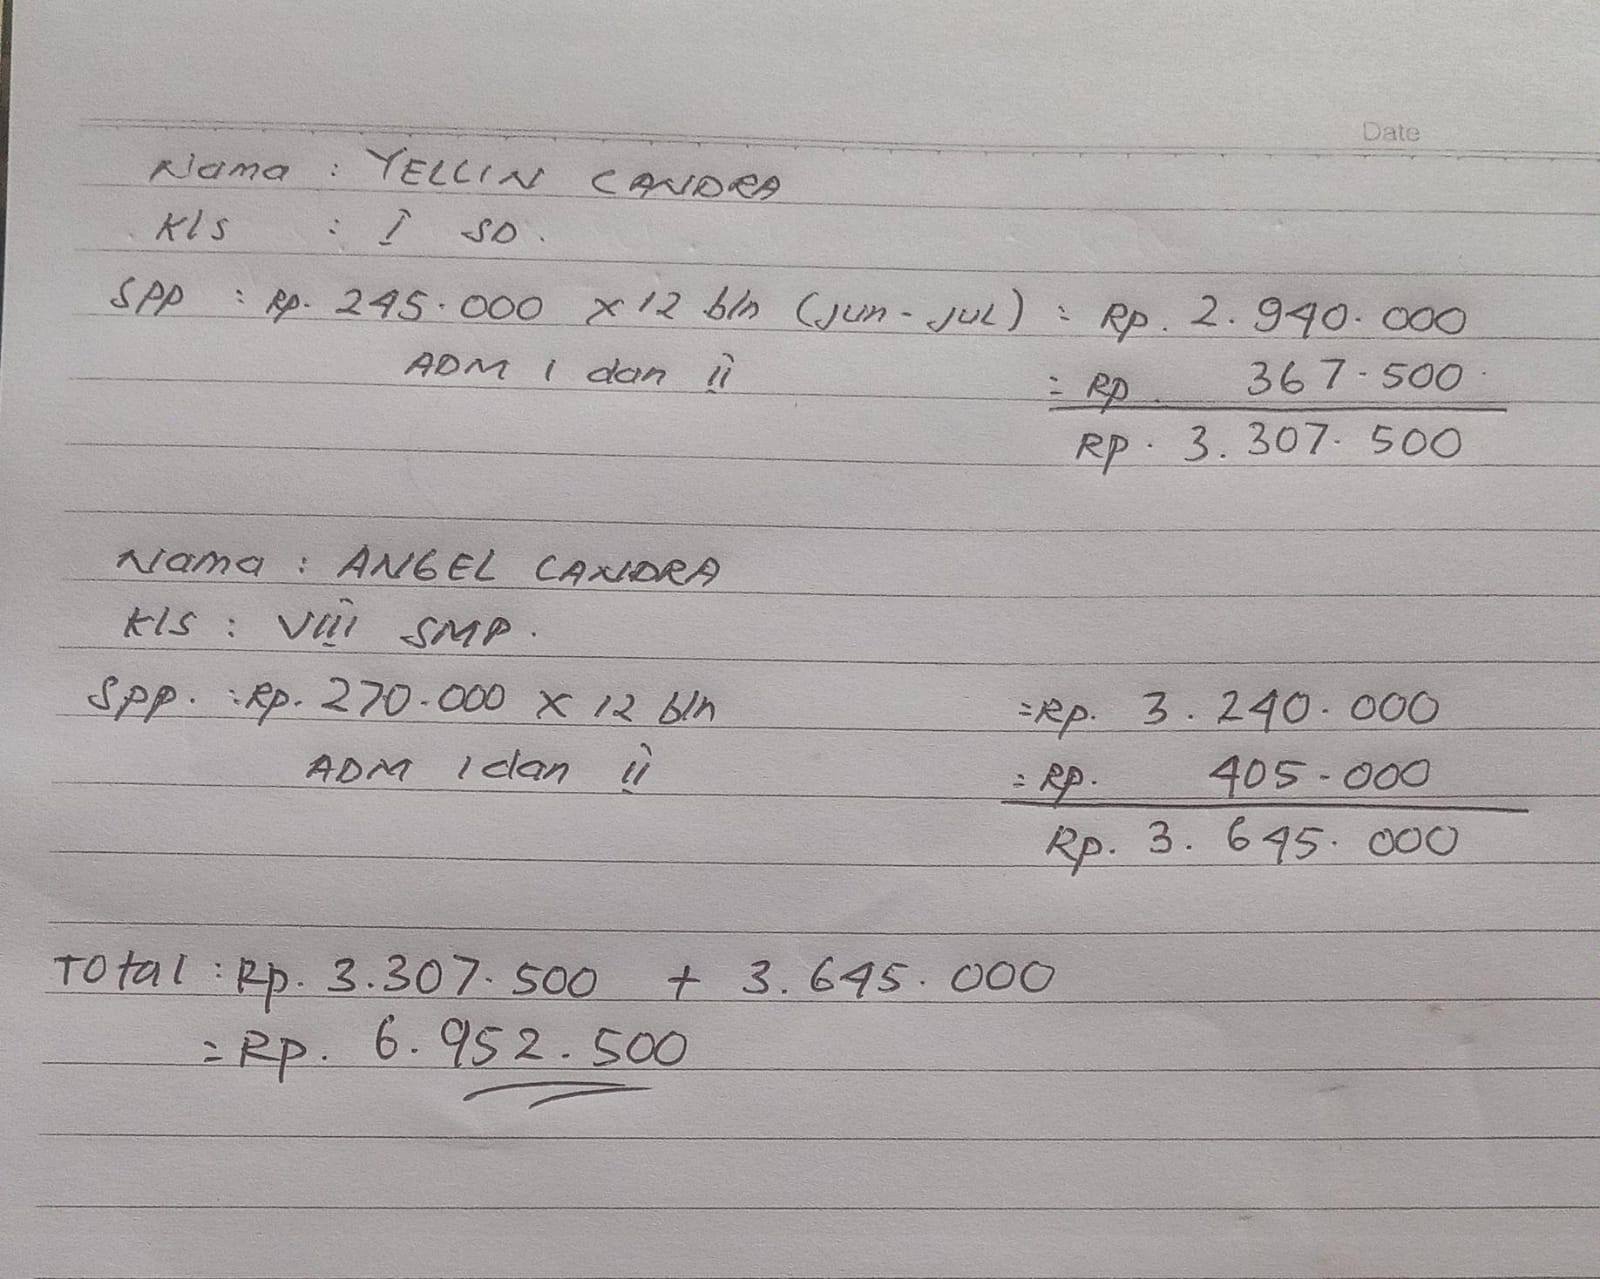 Date
Nama : YELLIN CANDRA
Kls : I SD.
SPP : Rp. 245.000 x 12 bln (jun - jul) : Rp. 2.940.000
ADM I dan II = Rp. 367.500
Rp. 3.307.500
Nama : ANGEL CANDRA
Kls : VIII SMP.
Spp. : Rp. 270.000 x 12 bln = Rp. 3.240.000
ADM I dan II = Rp. 405.000
Rp. 3.645.000
Total : Rp. 3.307.500 + 3.645.000
= Rp. 6.952.500